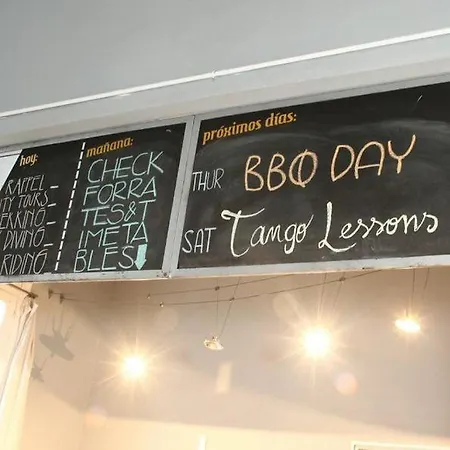 hoy:
RAPPEL
TY TOURS
EKKING
DIVING
RIDING
mañana:
CHECK
FOR RA
TES & T
IMETA
BLES
próximos días:
THUR BBQ DAY
SAT Tango Lessons